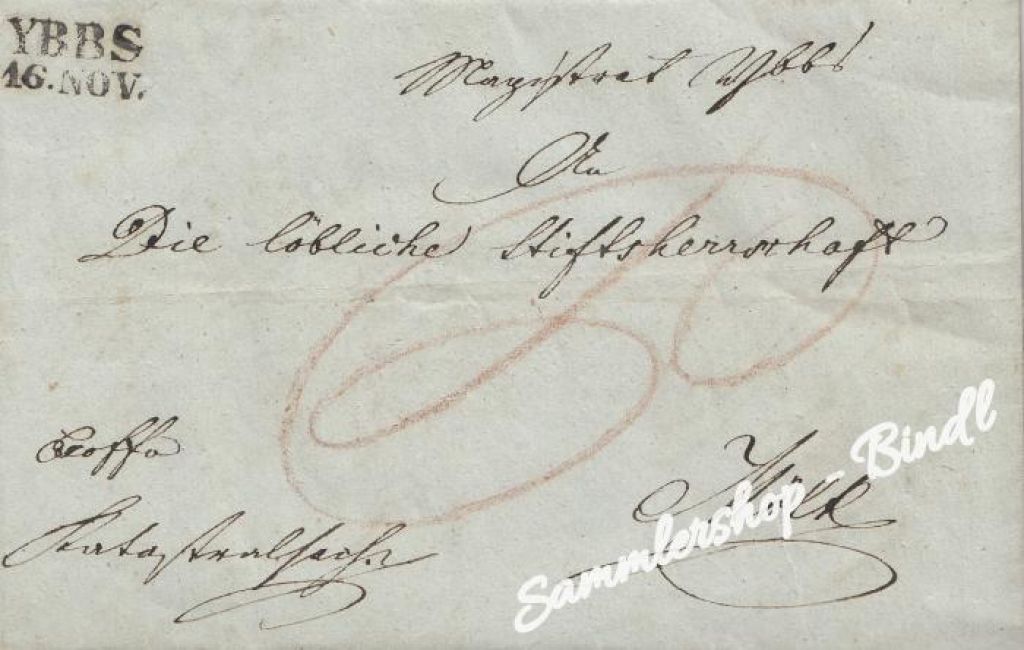 YBBS
16.NOV.
Magistrat Ybbs
An
Die löbliche Stiftsherrschaft
Mölk
Katastralsache
Sammlershop - Bindl